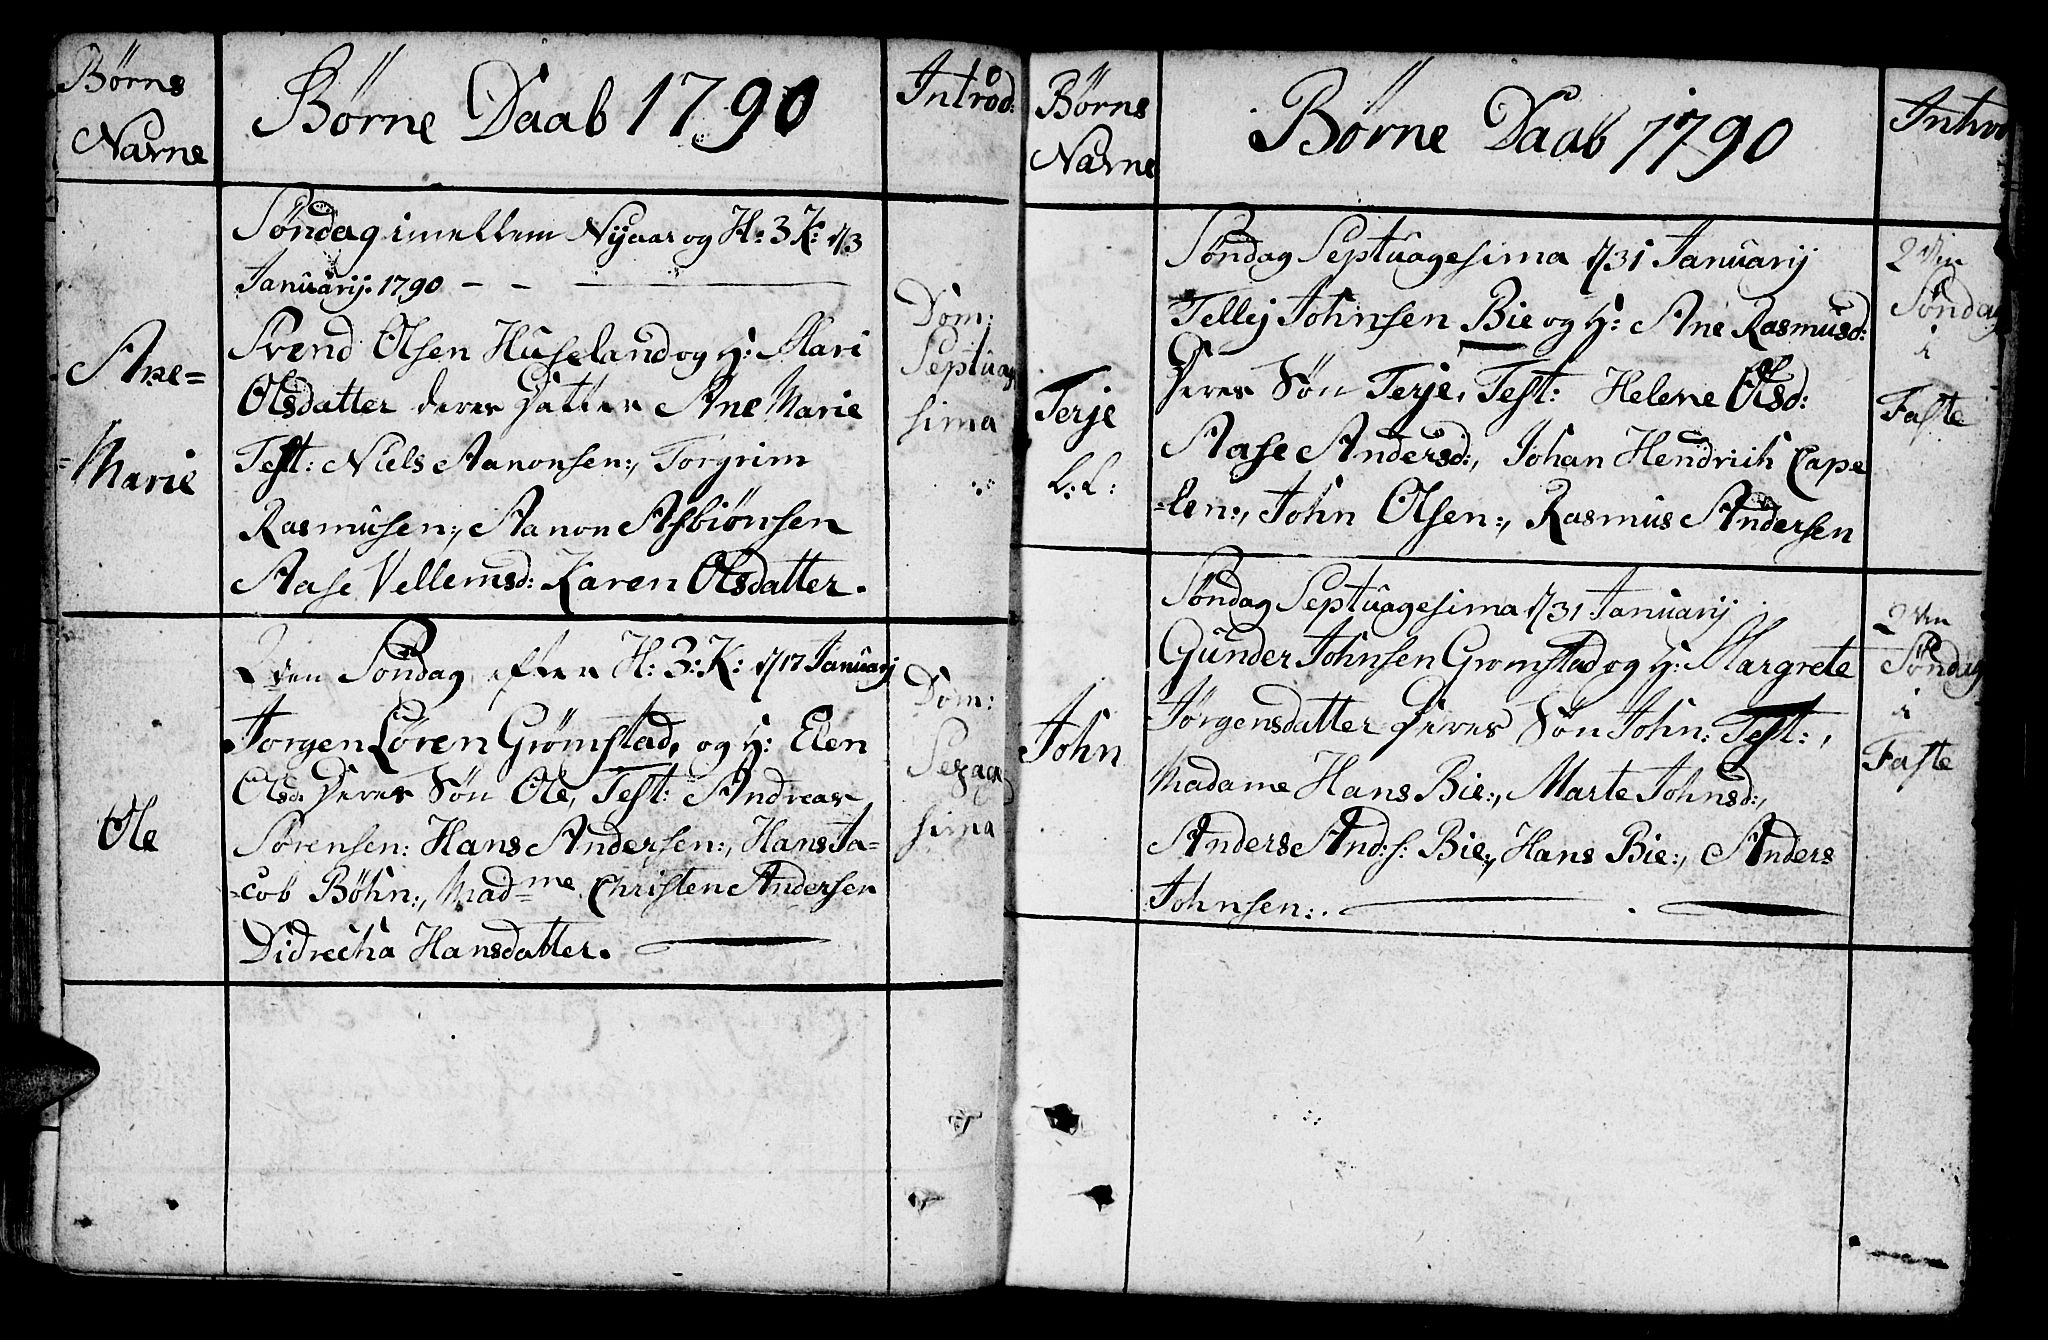 Børns
Navne
Børne Daab 1790
Introd:
Søndag imellem Nÿaar og H: 3 K: d/3
Januarij. 1790 — — —
Ane=
=Marie
Svend Olsen Huseland og H: Mari
Olsdatter deres Datter Ane Marie
Test: Niels Aanonsen:, Torgrim
Rasmusen:, Aanon Asbiønsen
Aase Vellemsd: Karen Olsdatter.
Dom:
Septuag
sima
2den Søndag efter H: 3: K: d/17 Januarj
Ole
Jørgen Søren Grømstad, og H: Elen
Olsd. Deres Søn Ole, Test: Andreas
Sørensen: Hans Andersen:, Hans Ja=
=cob Bøhn:, Mad=me Christen Andersen
Didrecha Hansdatter.
Dom:
sima
Børns
Navne
Børne Daab 1790
Introd
Søndag Septuagesima d/31 Januarij
Terje
L: L:
Tellej Johnsen Bie og H: Ane Rasmusd:
Deres Søn Terje, Test: Helene Olsd:
Aase Andersd:, Johan Hendrich Cape
=len:, John Olsen:, Rasmus Andersen
2den
Søndag
i
Faste
Søndag Septuagesima d/31 Januarij
John
Gunder Johnsen Gromstad og H: Margrete
Jørgensdatter Deres Søn John: Test:,
Madame Hans Bie:, Marte Johnsd:,
Anders And:s: Bie:, Hans Bie:, Anders
Johnsen:.
2den
Søndag
i
Faste